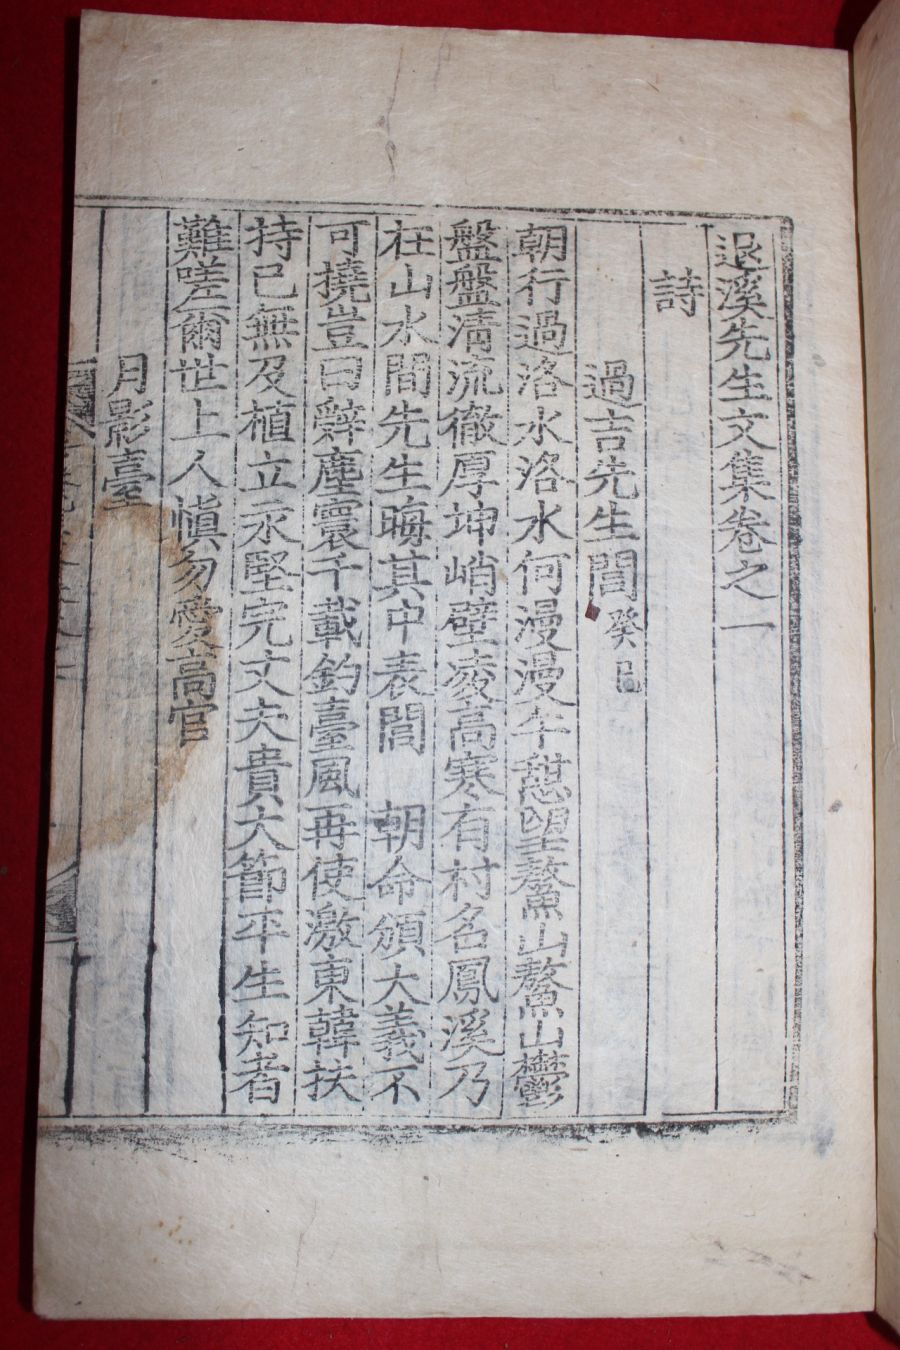 退溪先生文集卷之一
詩
過吉先生閭 癸巳
朝行過洛水洛水何漫漫午憇望鰲山鰲山鬱
盤盤清流徹厚坤峭壁凌高寒有村名鳳溪乃
在山水間先生晦其中表閭 朝命頒大義不
可撓豈曰辭塵寰千載釣臺風再使激東韓扶
持已無及植立永堅完丈夫貴大節平生知者
難嗟爾世上人愼勿愛高官
月影臺